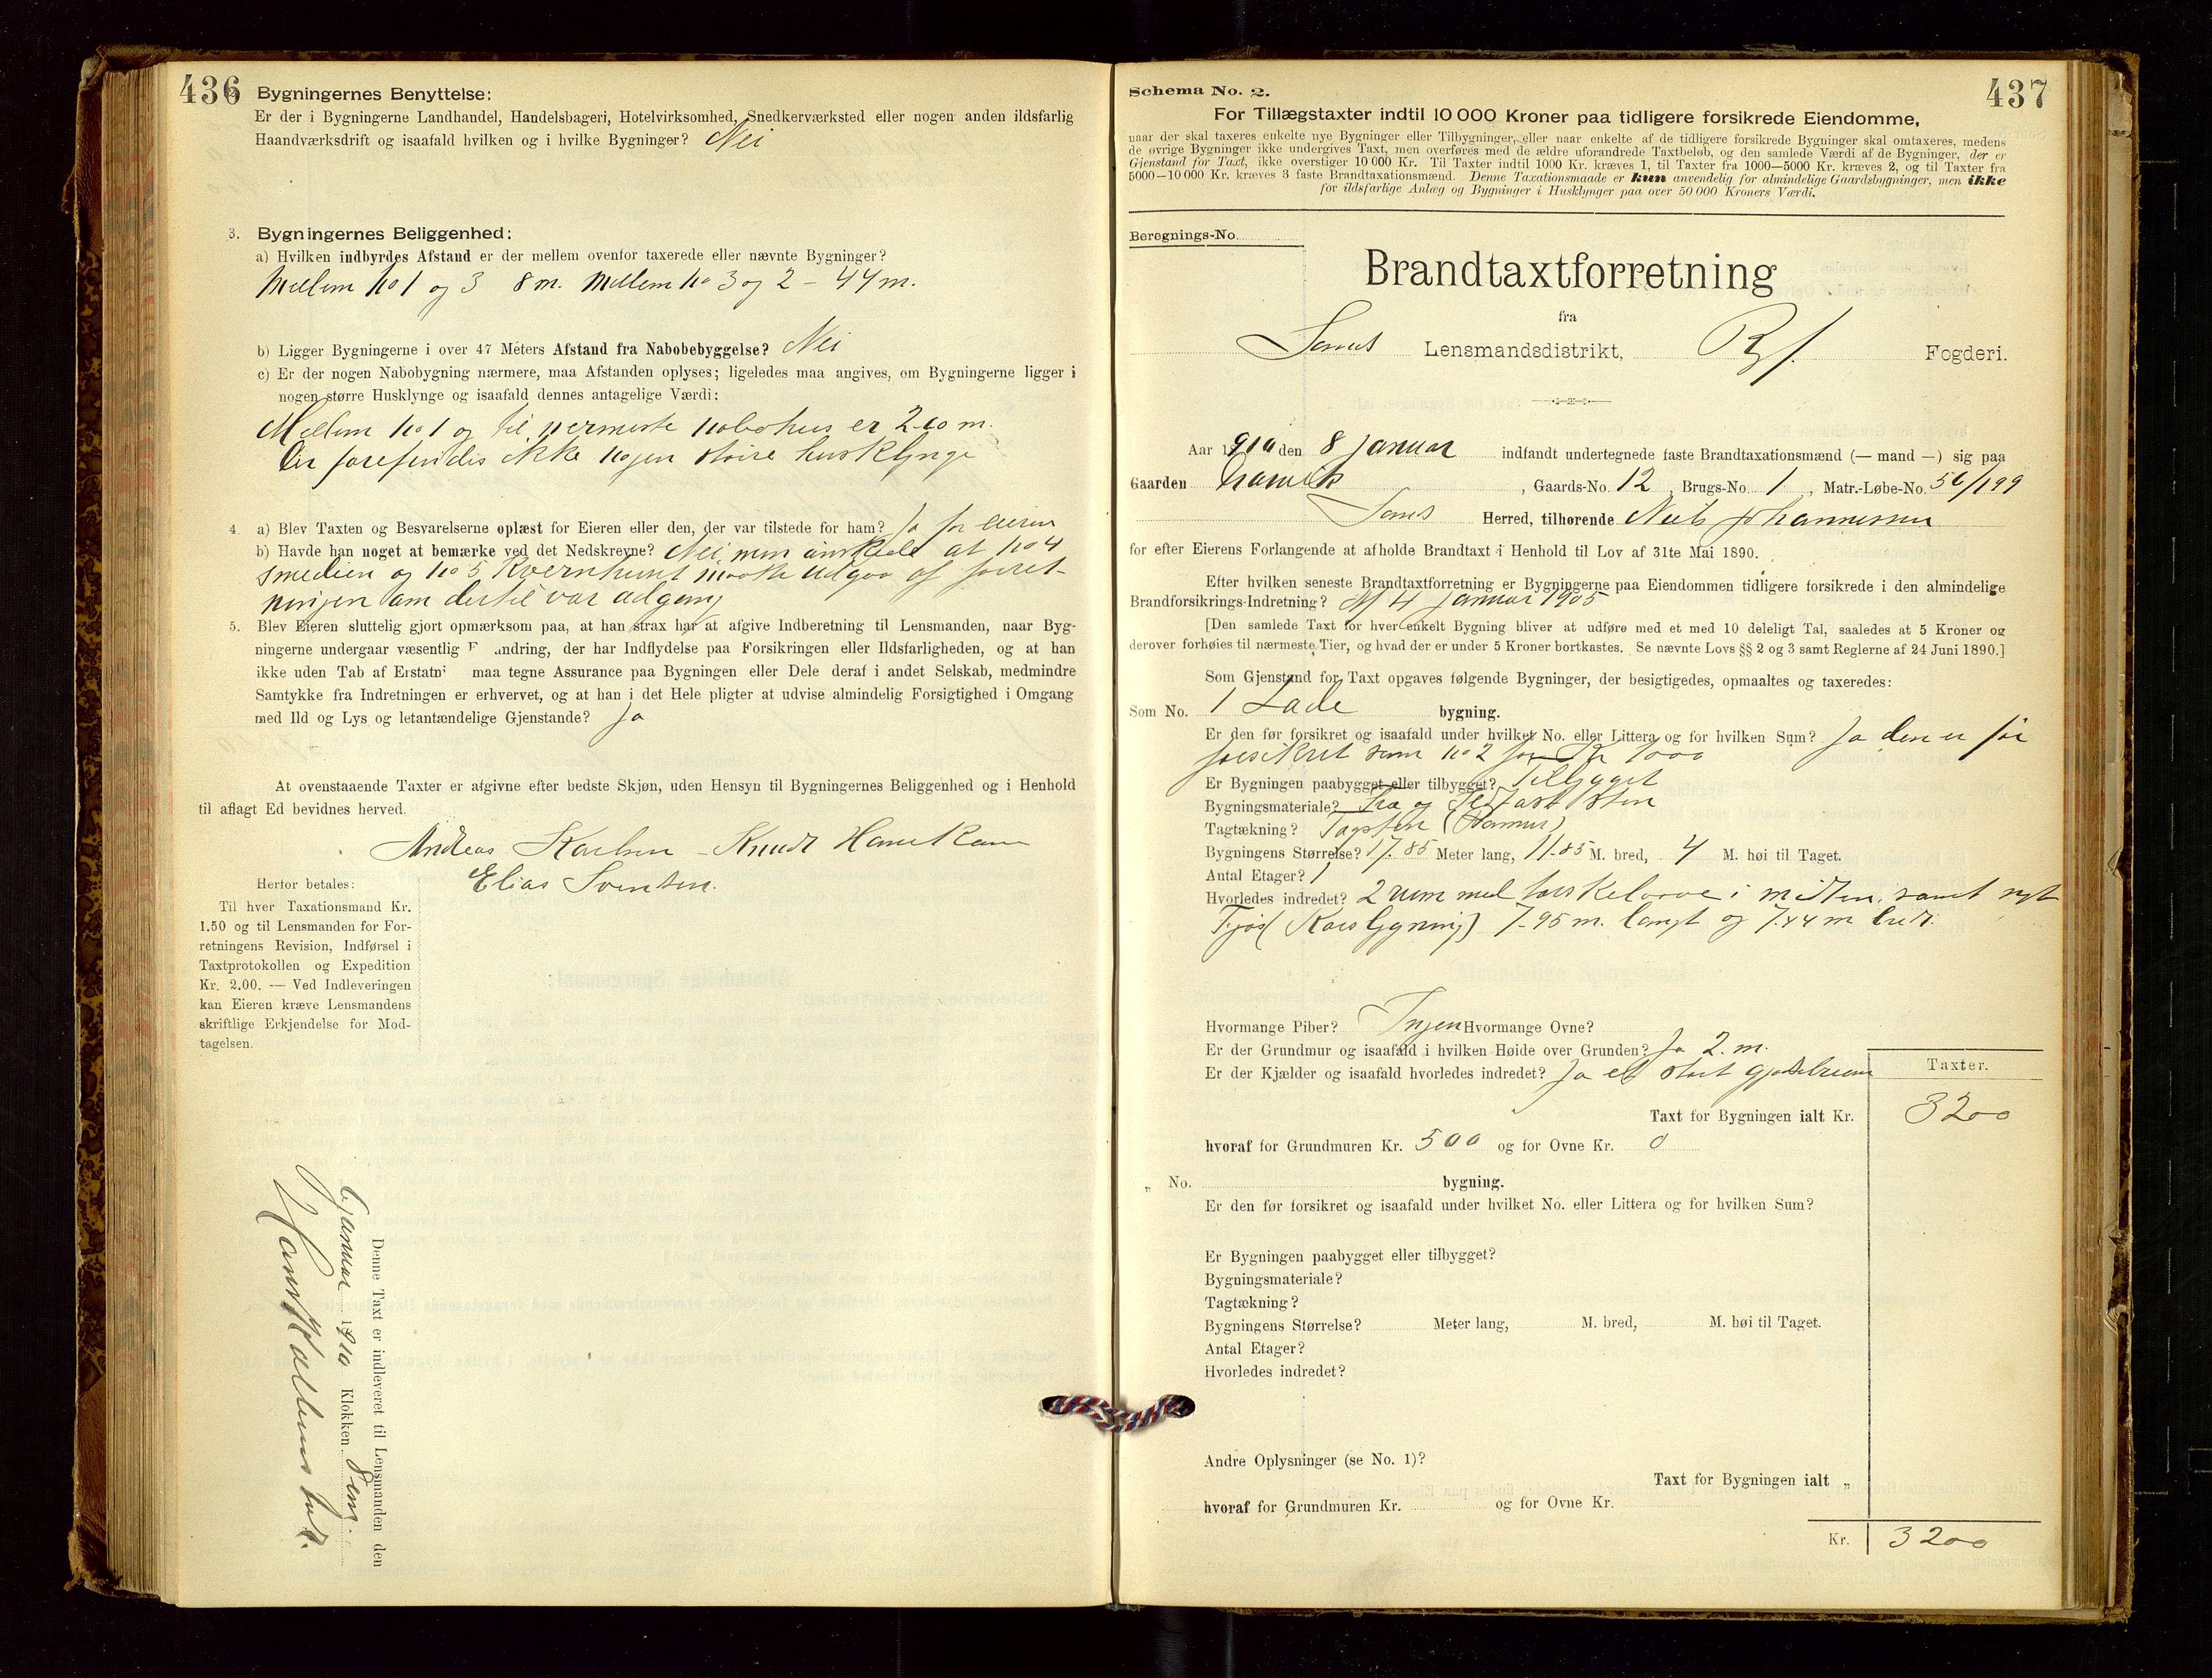 436
Bygningernes Benyttelse:
Er der i Bygningerne Landhandel, Handelsbageri, Hotelvirksomhed, Snedkerværksted eller nogen anden ildsfarlig
Haandværksdrift og isaafald hvilken og i hvilke Bygninger? Nei
3. Bygningernes Beliggenhed:
a) Hvilken indbyrdes Afstand er der mellem ovenfor taxerede eller nævnte Bygninger?
Mellem No 1 og 3 8 m. Mellem No 3 og 2 - 44 m.
b) Ligger Bygningerne i over 47 Meters Afstand fra Nabobebyggelse? Nei
c) Er der nogen Nabobygning nærmere, maa Afstanden oplyses; ligeledes maa angives, om Bygningerne ligger i
nogen større Husklynge og isaafald dennes antagelige Værdi:
Mellem No 1 og til nermeste nabohus er 200 m.
Der forefindes ikke nogen större husklynge
4. a) Blev Taxten og Besvarelserne oplæst for Eieren eller den, der var tilstede for ham? Ja for eieren
b) Havde han noget at bemærke ved det Nedskrevne? Nei men önskede at No 4
smedien og No 5 Kvernhuset maatte udgaa af forret-
ningen om dertil var adgang
5. Blev Eieren sluttelig gjort opmærksom paa, at han strax har at afgive Indberetning til Lensmanden, naar Byg-
ningerne undergaar væsentlig F andring, der har Indflydelse paa Forsikringen eller Ildsfarligheden, og at han
ikke uden Tab af Erstatn maa tegne Assurance paa Bygningen eller Dele deraf i andet Selskab, medmindre
Samtykke fra Indretningen er erhvervet, og at han i det Hele pligter at udvise almindelig Forsigtighed i Omgang
med Ild og Lys og letantændelige Gjenstande? Ja
At ovenstaaende Taxter er afgivne efter bedste Skjøn, uden Hensyn til Bygningernes Beliggenhed og i Henhold
til aflagt Ed bevidnes herved.
Andreas Karlsen - Knudt
Elias Svensen.
Herfor betales:
Til hver Taxationsmand Kr.
1.50 og til Lensmanden for For-
retningens Revision, Indførsel i
Taxtprotokollen og Expedition
Kr. 2.00. — Ved Indleveringen
kan Eieren kræve Lensmandens
skriftlige Erkjendelse for Mod-
tagelsen.
Denne Taxt er indleveret til Lensmanden den
januar 1910 Klokken 8 em.
437
Schema No. 2.
For Tillægstaxter indtil 10 000 Kroner paa tidligere forsikrede Eiendomme,
naar der skal taxeres enkelte nye Bygninger eller Tilbygninger, eller naar enkelte af de tidligere forsikrede Bygninger skal omtaxeres, medens
de øvrige Bygninger ikke undergives Taxt, men overføres med de ældre uforandrede Taxtbeløb, og den samlede Værdi af de Bygninger, der er
Gjenstand for Taxt, ikke overstiger 10 000 Kr. Til Taxter indtil 1000 Kr. kræves 1, til Taxter fra 1000—5000 Kr. kræves 2, og til Taxter fra
5000—10 000 Kr. kræves 3 faste Brandtaxationsmænd. Denne Taxationsmaade er kun anvendelig for almindelige Gaardsbygninger, men ikke
for ildsfarlige Anlæg og Bygninger i Husklynger paa over 50 000 Kroners Værdi.
Beregnings-No.
Brandtaxtforretning
fra
Lensmandsdistrikt, Ryf. Fogderi.
Aar 1910 den 8 Januar indfandt undertegnede faste Brandtaxationsmænd (— mand —) sig paa
Gaarden , Gaards-No. 12, Brugs-No. 1, Matr.-Løbe-No. 56/199
Herred, tilhørende Niels Johannessen
for efter Eierens Forlangende at afholde Brandtaxt i Henhold til Lov af 31te Mai 1890.
Efter hvilken seneste Brandtaxtforretning er Bygningerne paa Eiendommen tidligere forsikrede i den almindelige
Brandforsikrings-Indretning? Af 4 Januar 1905
[Den samlede Taxt for hver enkelt Bygning bliver at udføre med et med 10 deleligt Tal, saaledes at 5 Kroner og
derover forhøies til nærmeste Tier, og hvad der er under 5 Kroner bortkastes. Se nævnte Lovs §§ 2 og 3 samt Reglerne af 24 Juni 1890.]
Som Gjenstand for Taxt opgaves følgende Bygninger, der besigtigedes, opmaaltes og taxeredes:
Som No. 1 Lade bygning.
Er den før forsikret og isaafald under hvilket No. eller Littera og for hvilken Sum? Ja den er før
forsikret som No 2 for Kr 1000
Er Bygningen paabygget eller tilbygget? Tilbygget
Bygningsmateriale? Træ og sten
Tagtækning? Tagsten
Bygningens Størrelse? 17.85 Meter lang, 11.85 M. bred, 4 M. høi til Taget.
Antal Etager? 1
Hvorledes indredet? 2 rum med torskelove i midten, samt nyt
Fjøs 7.95 m. langt og 7.44 m bredt.
Hvormange Piber? Ingen Hvormange Ovne?
Er der Grundmur og isaafald i hvilken Høide over Grunden? Ja 2. m.
Er der Kjælder og isaafald hvorledes indredet? Ja et stort gjødselrum
Taxter.
Taxt for Bygningen ialt Kr. 3200
hvoraf for Grundmuren Kr. 500 og for Ovne Kr. 0
„ No. bygning.
Er den før forsikret og isaafald under hvilket No. eller Littera og for hvilken Sum?
Er Bygningen paabygget eller tilbygget?
Bygningsmateriale?
Tagtækning?
Bygningens Størrelse? Meter lang, M. bred, M. høi til Taget.
Antal Etager?
Hvorledes indredet?
Andre Oplysninger (se No. 1)?
Taxt for Bygningen ialt „
hvoraf for Grundmuren Kr. og for Ovne Kr.
Kr. 3200